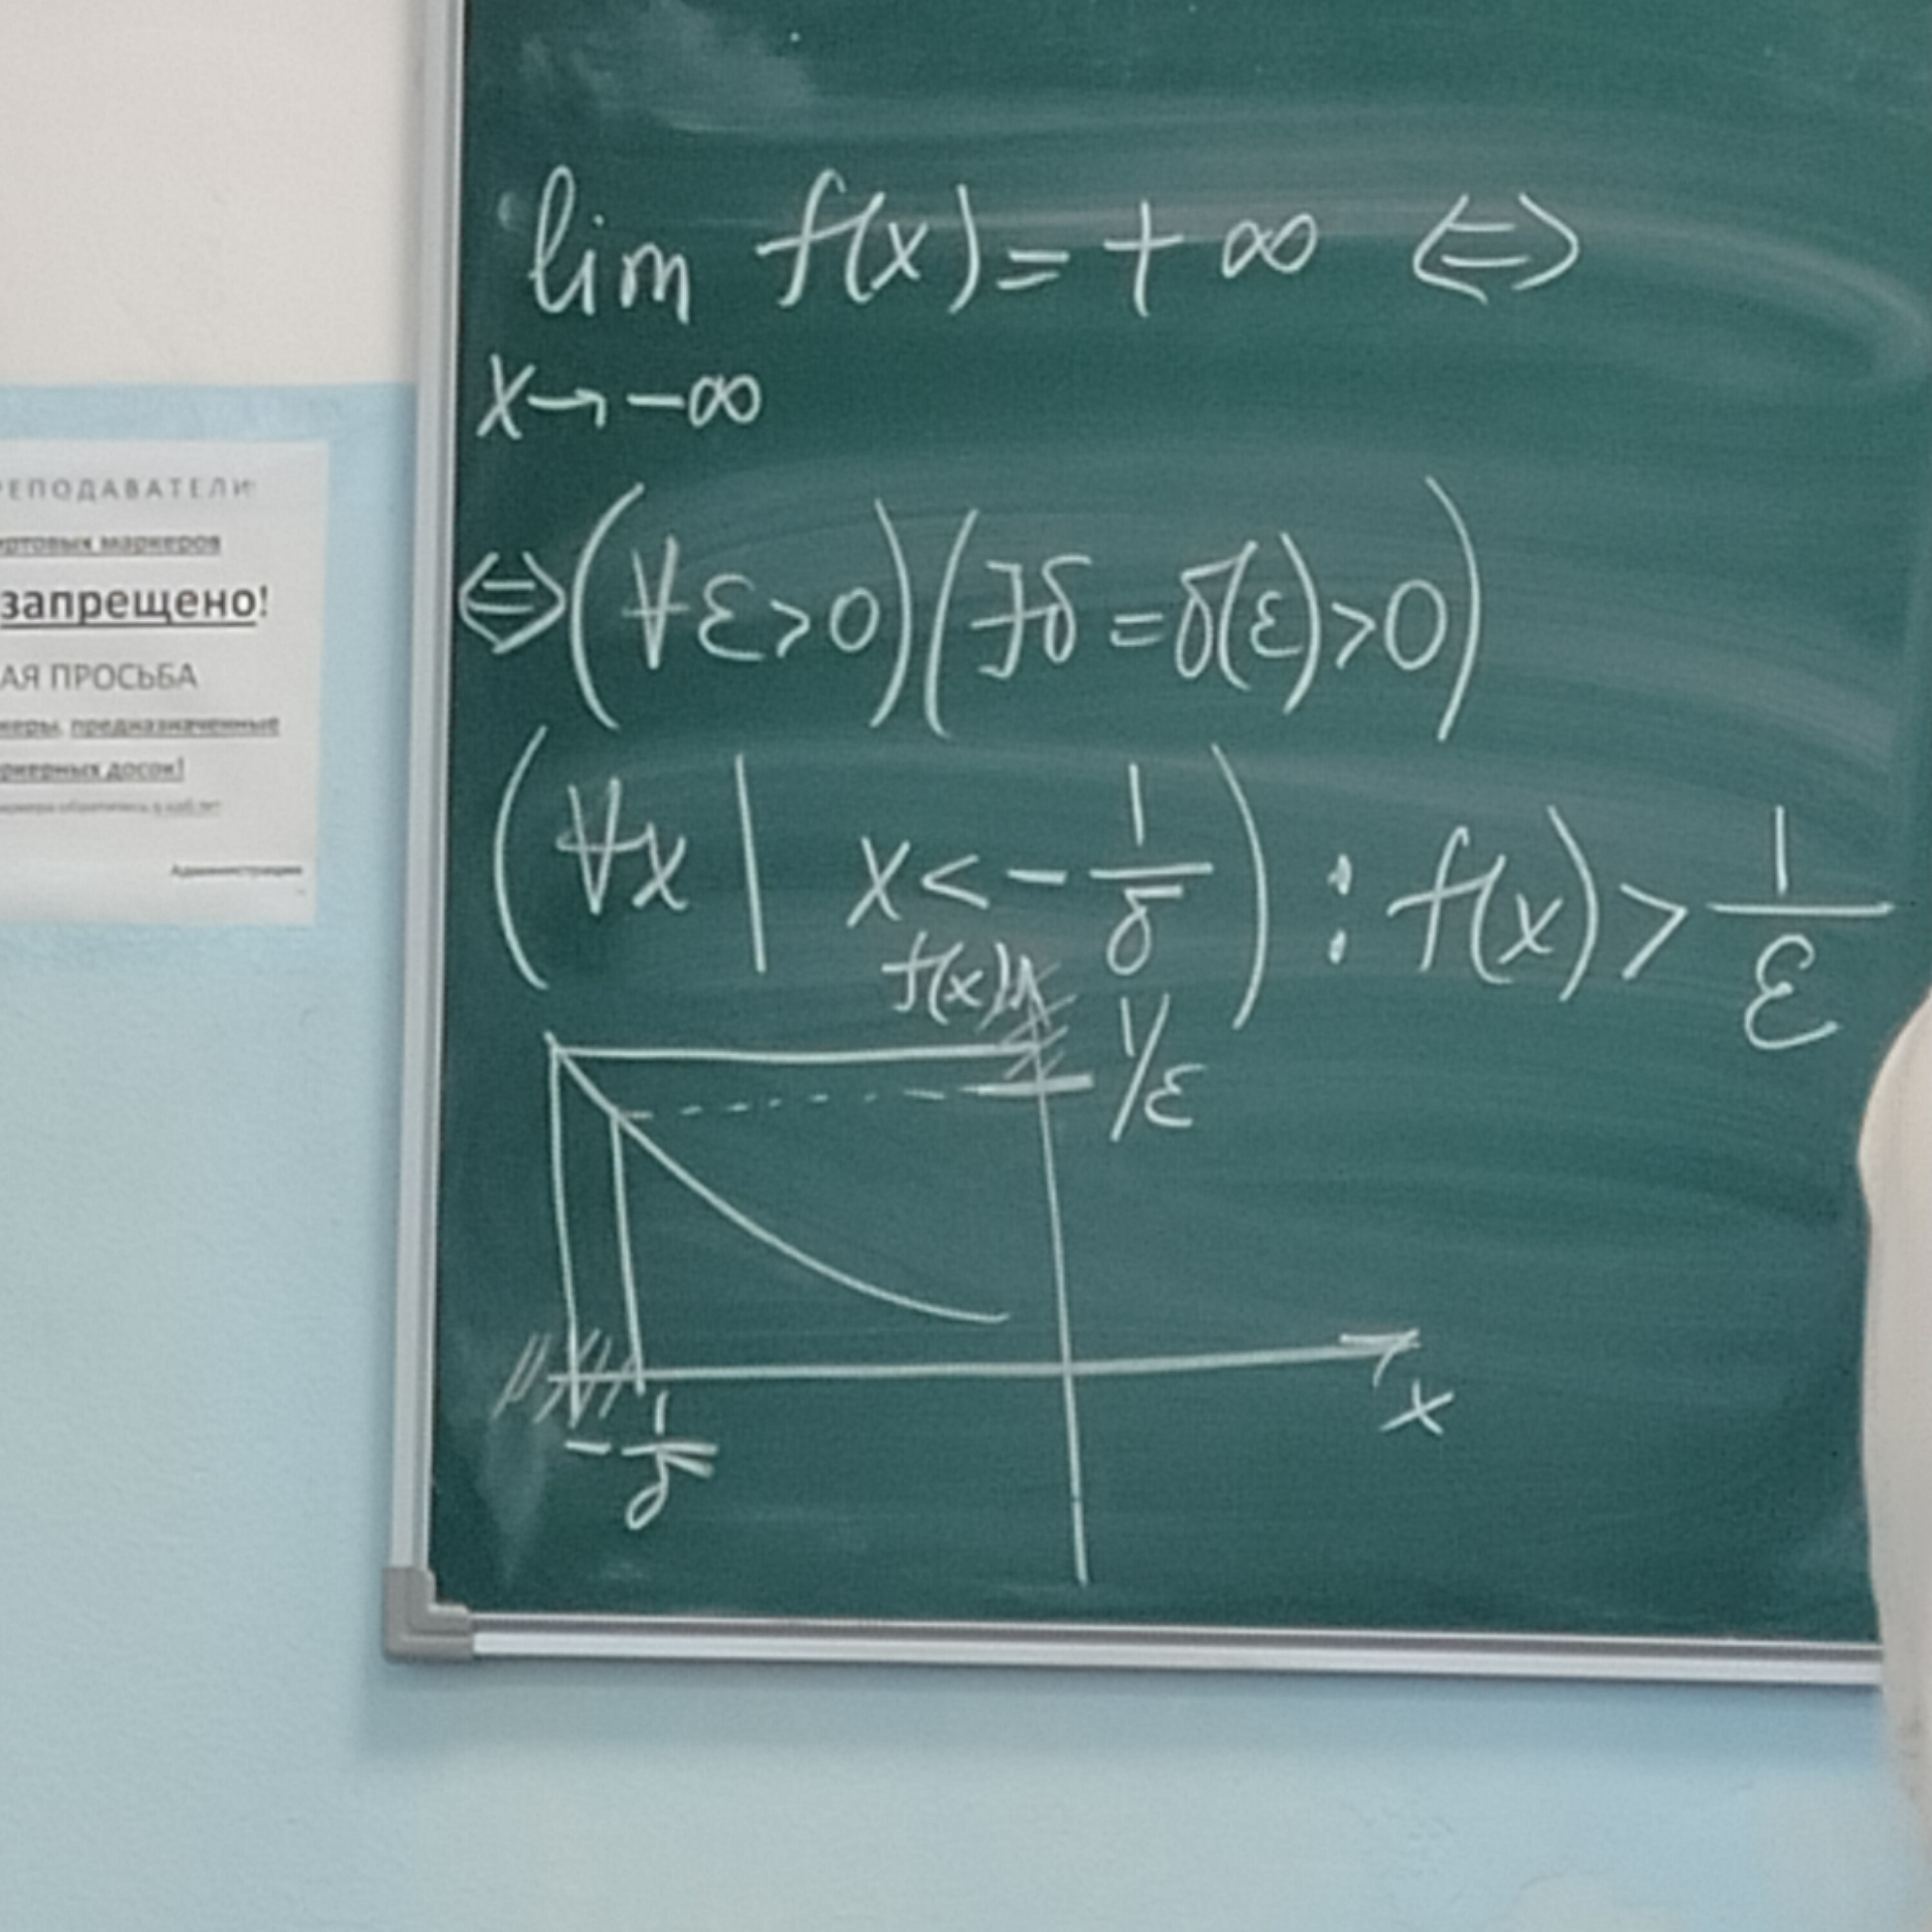 РЕПОДАВАТЕЛИ!
ртовых маркеров
запрещено!
АЯ ПРОСЬБА
керы, предназначенные
ркерных досок!
Администрация
lim f(x) = + ∞ ⇔
x → -∞
⇔ (∀ε>0) (∃δ = δ(ε)>0)
(∀x | x < - 1/δ) : f(x) > 1/ε
f(x)
1/ε
x
- 1/δ